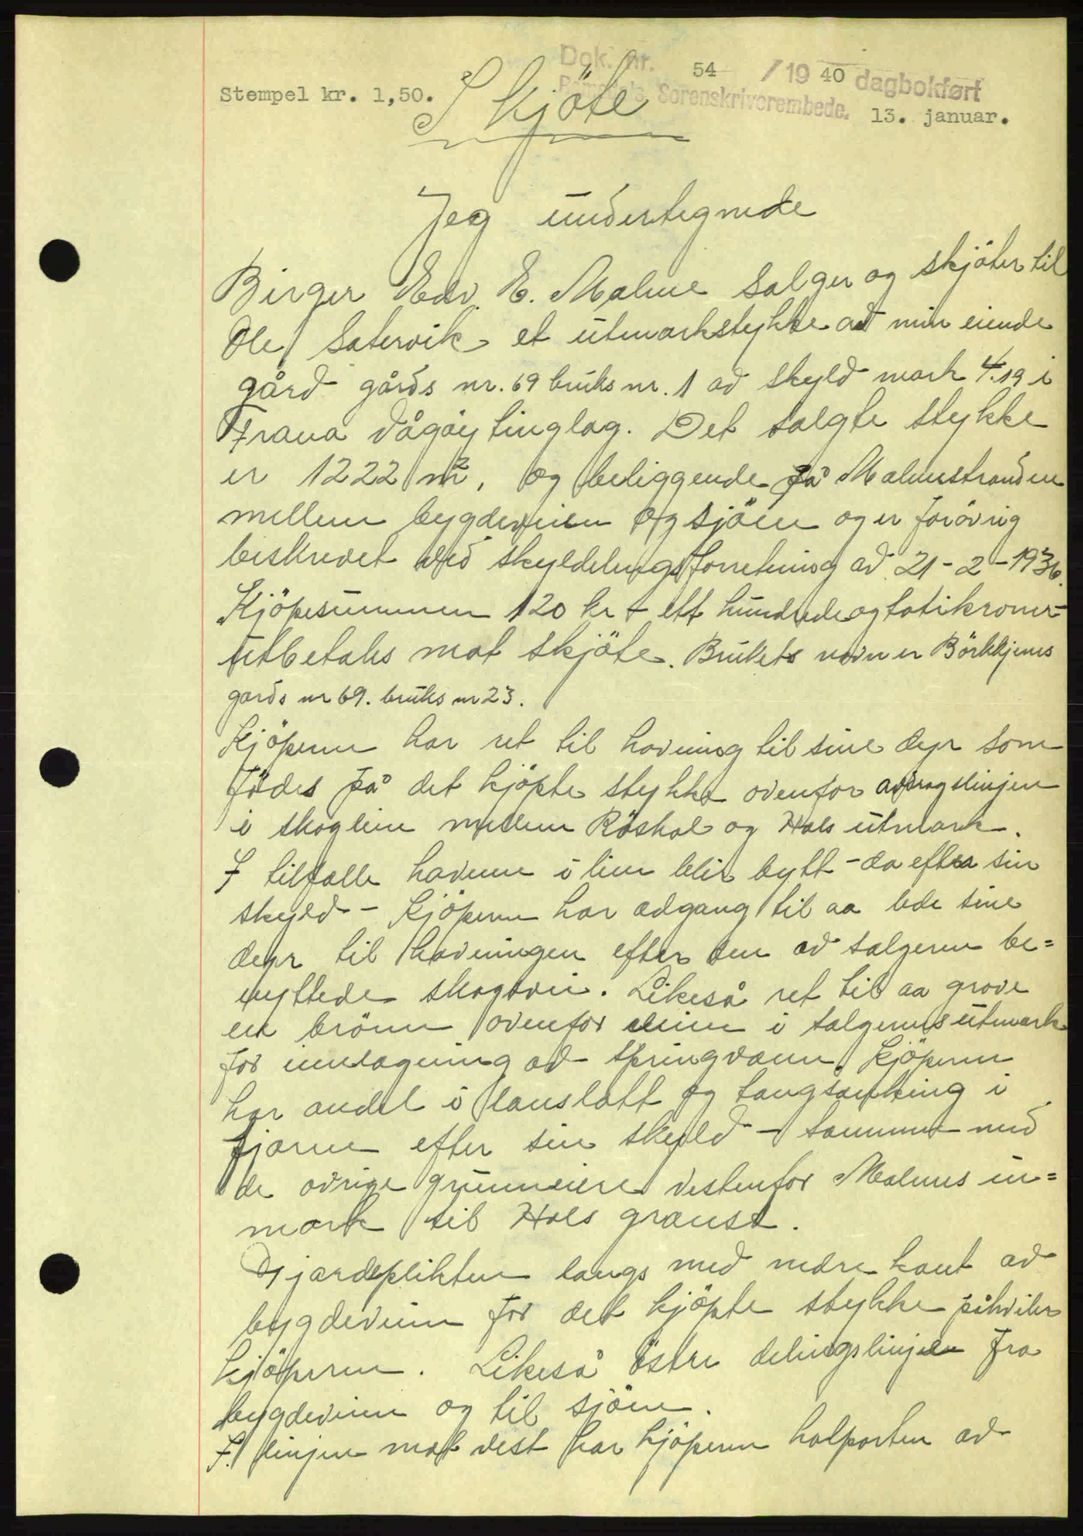 Dok. nr. 54 / 19 40 dagbokført
Stempel kr. 1,50. Romsdals Sorenskriverembede. 13. januar.
Skjöte
Jeg undertegnede
Birger Edv. E. Malme sælger og skjöter til
Ole Sætervik et utmarkstykke av min eiende
gård gårds nr. 69 bruks nr. 1 av skyld mark 4.19 i
Fræna Vågöy tinglag. Det solgte stykke
er 1222 m², og beliggende på Malmestranden
mellem bygdeveien og sjöen og er forövrig
beskrevet ved skylddelingsforretning av 21-2-1936.
Kjöpesummen 120 kr - ett hundrede og totikroner -
utbetales mot skjöte. Brukets navn er
gårds nr 69. bruks nr 23.
Kjöperen har ret til havning til sine dyr som
födes på det kjöpte stykke ovenfor
i skoglien mellem Röshol og Hols utmark.
I tilfælle havnen i lien blir bytt - da efter sin
skyld - Kjöperen har adgang til aa lede sine
dyr til havningen efter den av sælgeren be=
nyttede skogsvei. Likeså ret til aa grave
en brönn ovenfor veien i sælgerens utmark
for inntagning av springvann. Kjöperen
har andel i landslått og tangsanking i
fjæren efter sin skyld - sammen med
de övrige grunneiere vestenfor Malmes inn=
mark til Hols grense.
Gjærdeplikten langs med nedre kant av
bygdeveien for det kjöpte stykke påhviler
kjöperen. Likeså östre delingslinjen fra
bygdeveien og til sjöen.
I linjen mot vest har kjöperen halparten av